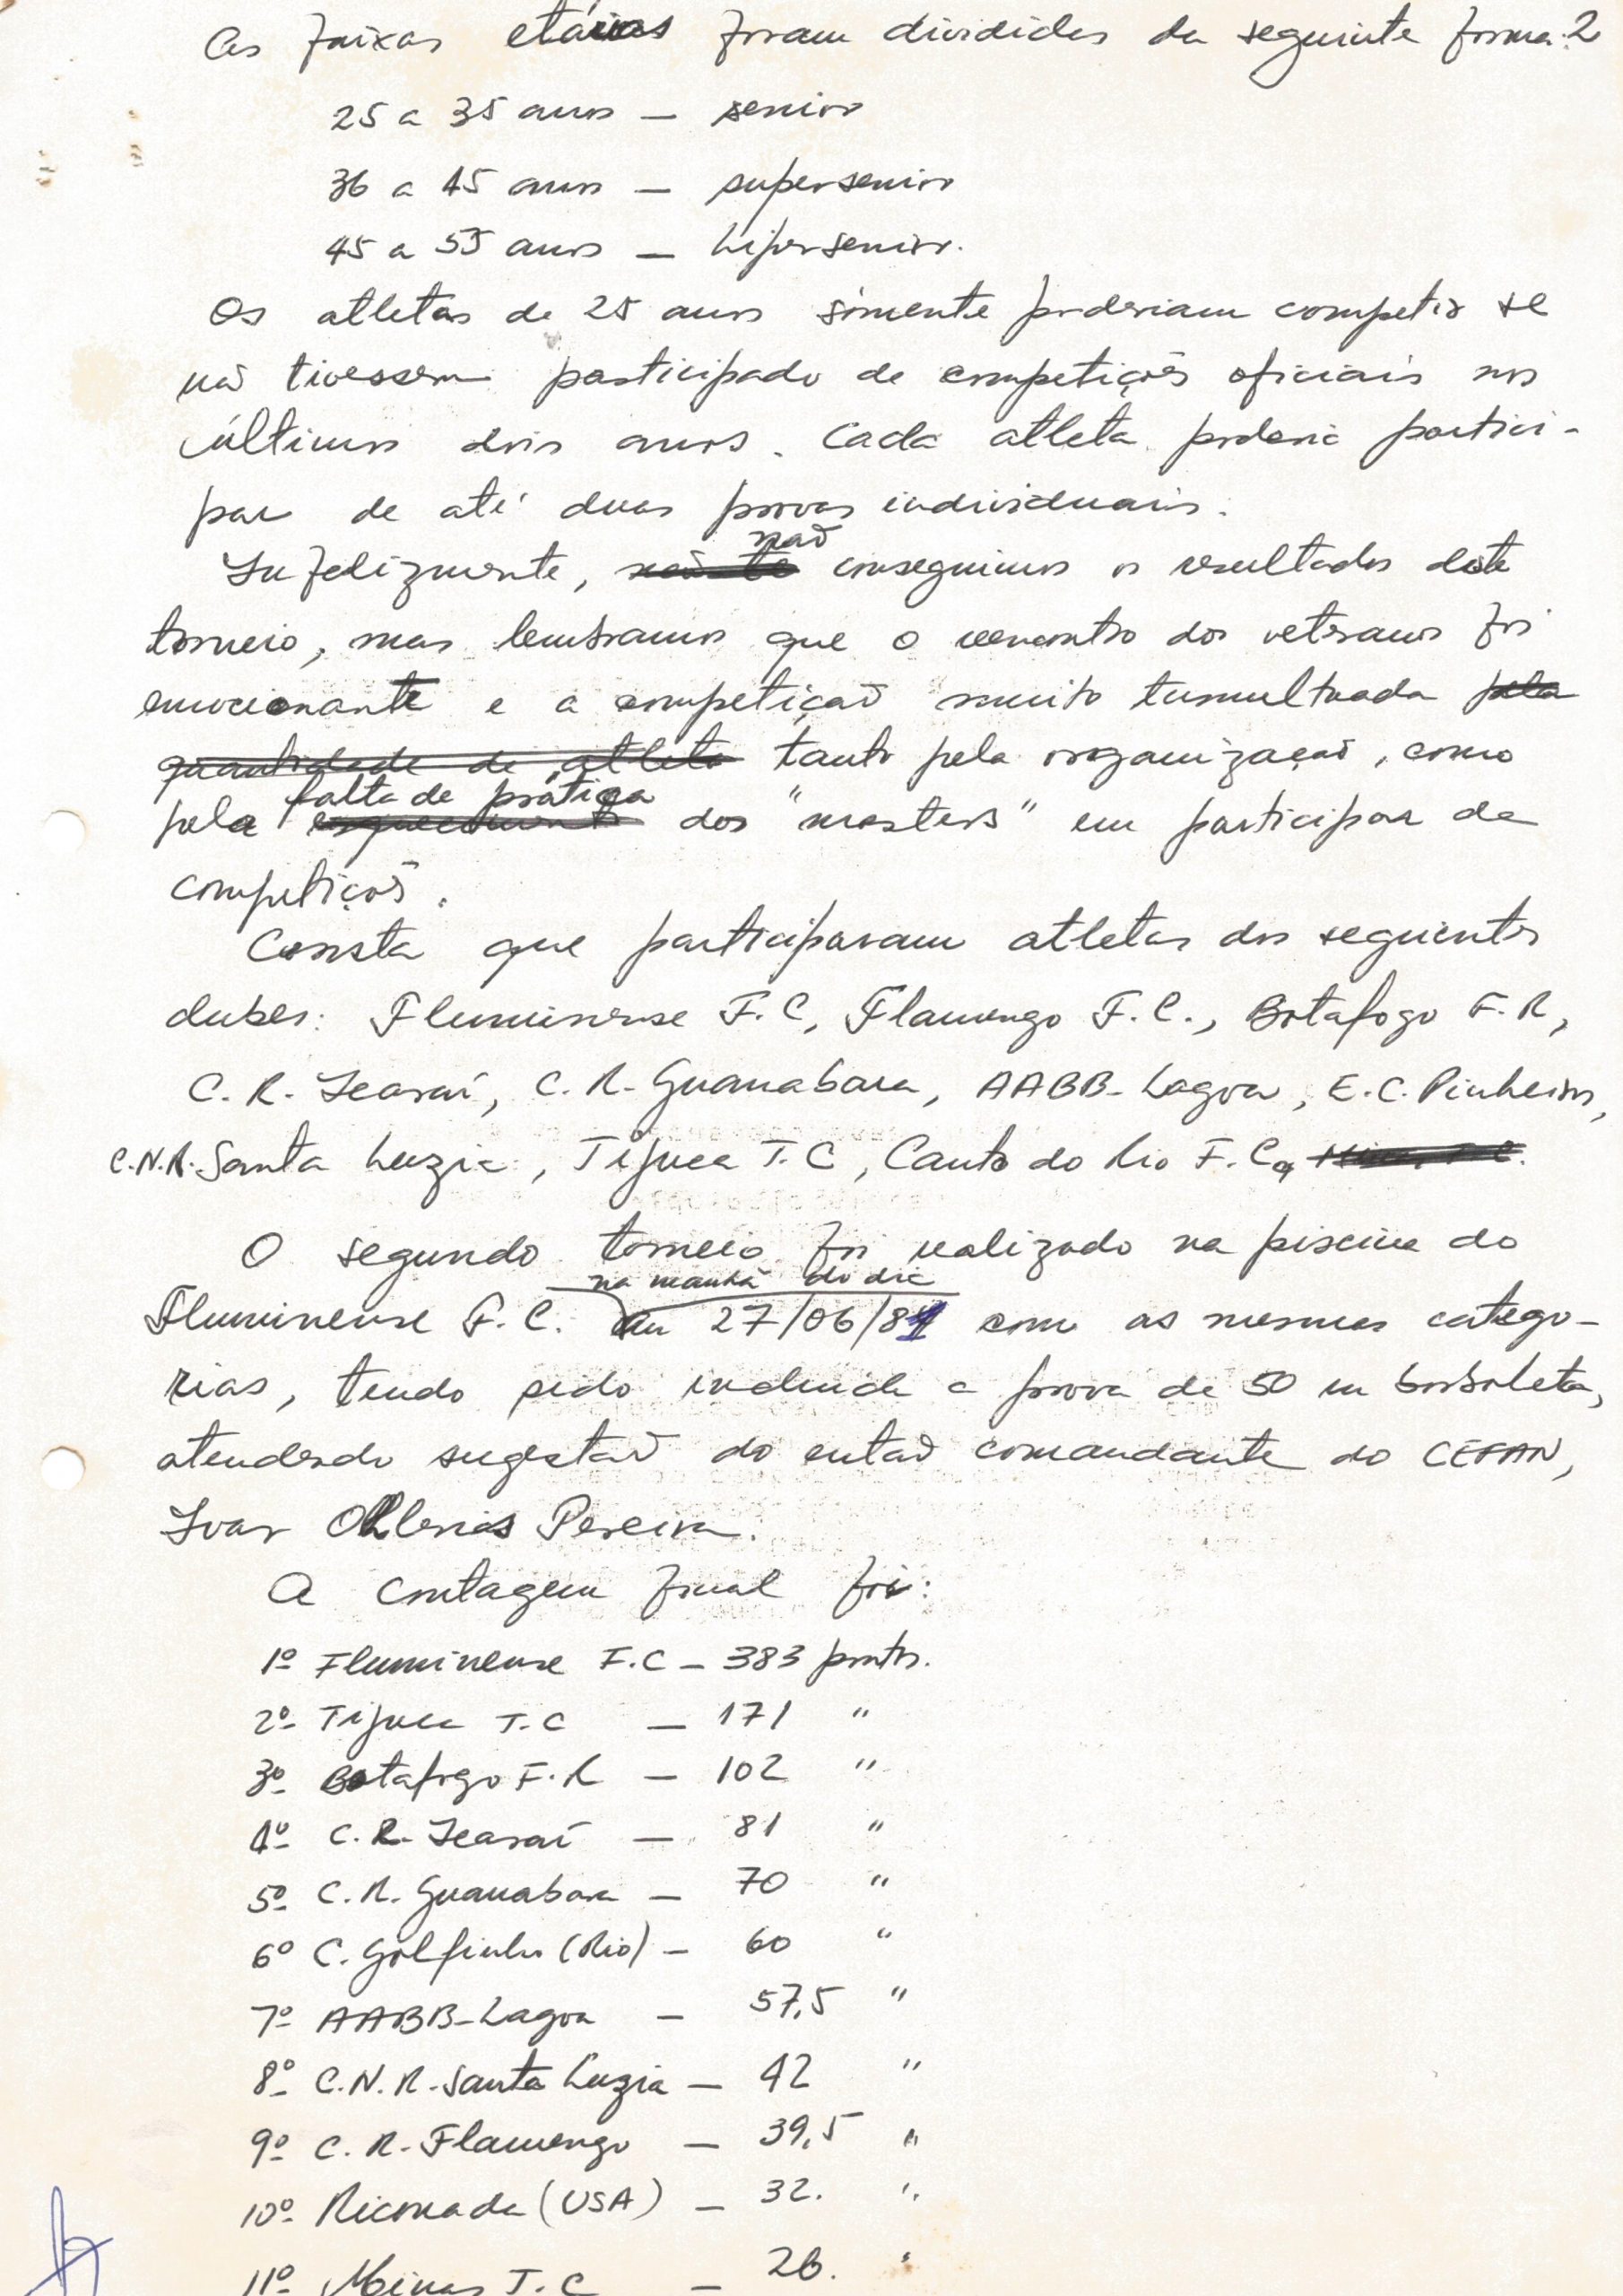 As faixas etárias foram divididas da seguinte forma: 2
25 a 35 anos — senior
36 a 45 anos — supersenior
45 a 55 anos — hipersenior.
Os atletas de 25 anos sòmente poderiam competir se
não tivessem participado de competições oficiais nos
últimos dois anos. Cada atleta poderia partici-
par de até duas provas individuais.
não
Infelizmente, conseguimos os resultados deste
torneio, mas lembramos que o reencontro dos veteranos foi
emocionante e a competição muito tumultuada pela
quantidade de atleta tanto pela organização, como
falta de prática
pela esquecimento dos "masters" em participar de
competições.
Consta que participaram atletas dos seguintes
clubes: Fluminense F.C, Flamengo F.C., Botafogo F.R,
C.R. Icaraí, C.R. Guanabara, AABB-Lagoa, E.C. Pinheiros,
C.N.R. Santa Luzia, Tijuca T.C, Canto do Rio F.C,
O segundo torneio foi realizado na piscina do
na manhã do dia
Fluminense F.C. em 27/06/84 com as mesmas catego-
rias, tendo sido incluida a prova de 50 m borboleta,
atendendo sugestão do então comandante do CEFAN,
Ivar Pereira.
A contagem final foi:
1º Fluminense F.C — 383 pontos.
2º Tijuca T.C — 171 "
3º Botafogo F.R — 102 "
4º C.R. Icaraí — 81 "
5º C.R. Guanabara — 70 "
6º C. Golfinho (Rio) — 60 "
7º AABB-Lagoa — 57,5 "
8º C.N.R. Santa Luzia — 42 "
9º C.R. Flamengo — 39,5 "
10º (USA) — 32. "
11º Minas T.C — 26. "